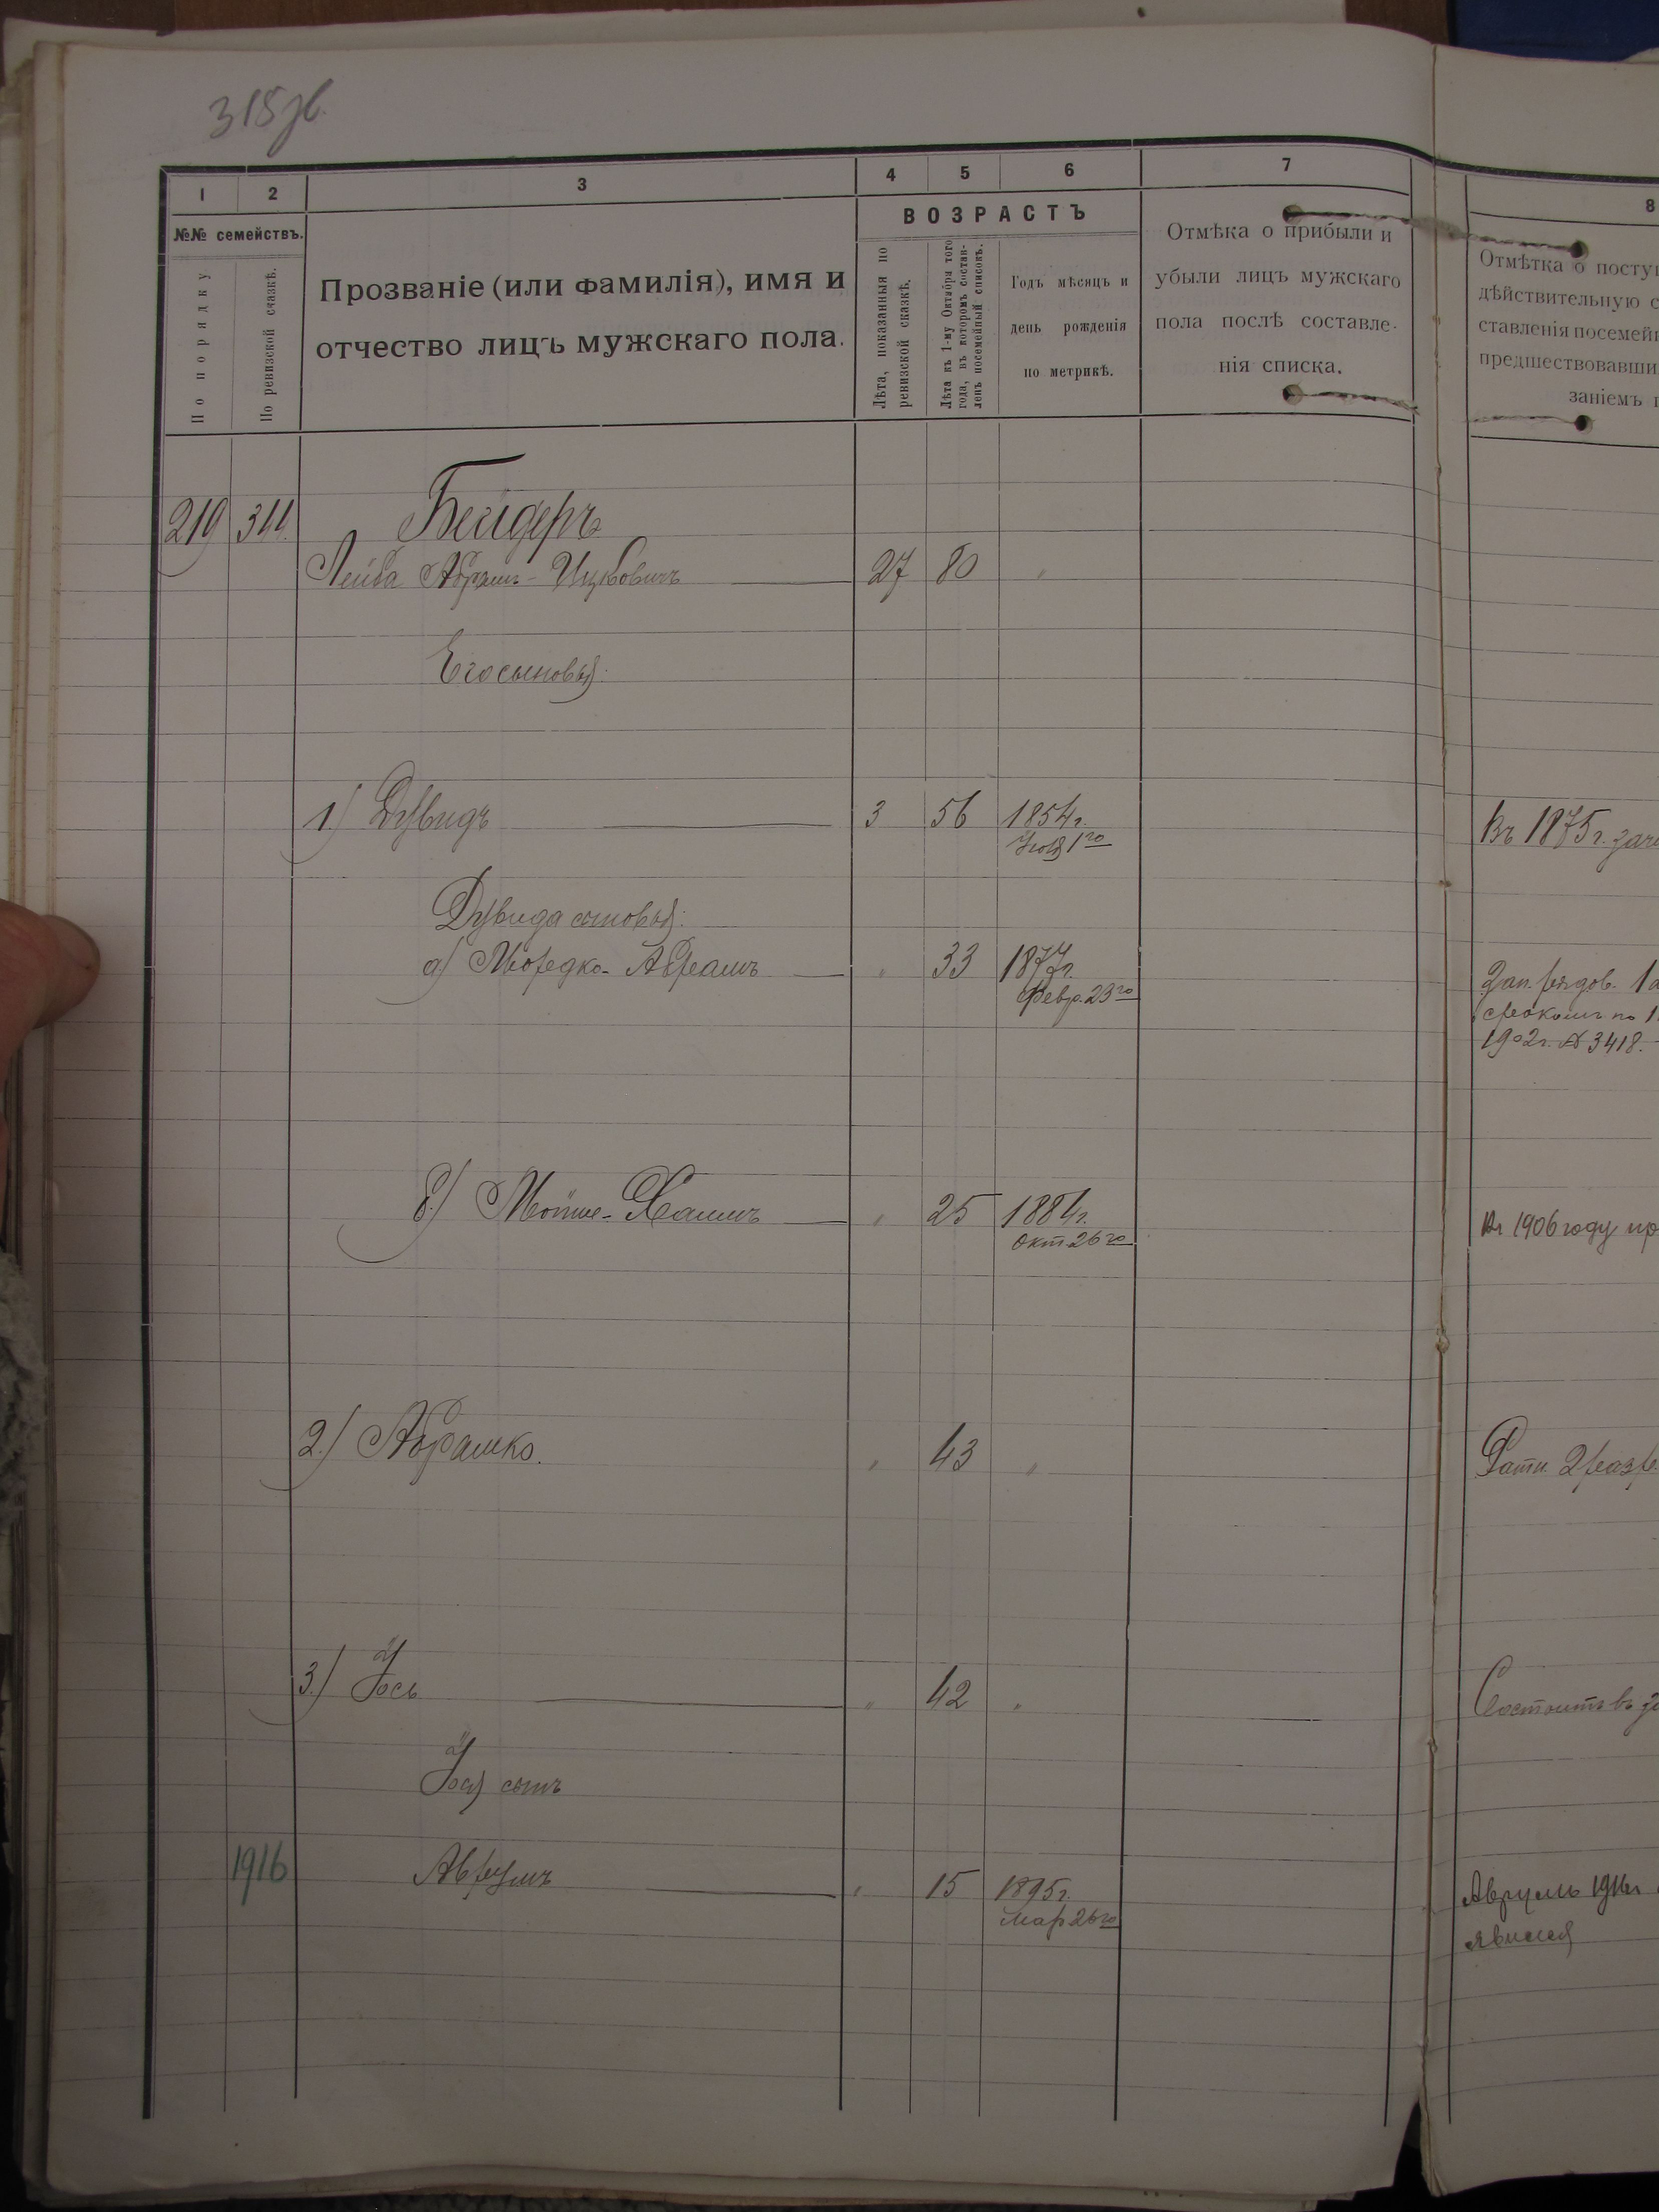 315об.
1 2 3 4 5 6 7 8
№№ семействъ.
По порядку
По ревизской сказкѣ.
Прозваніе (или фамилія), имя и
отчество лицъ мужскаго пола.
ВОЗРАСТЪ
Лѣта, показанныя по
ревизской сказкѣ.
Лѣта къ 1-му Октября того
года, въ которомъ состав-
ленъ посемейный списокъ.
Годъ мѣсяцъ и
день рожденія
по метрикѣ.
Отмѣка о прибыли и
убыли лицъ мужскаго
пола послѣ составле-
нія списка.
Отмѣтка о посту
дѣйствительную с
ставленія посемей
предшествовавши
заніемъ
219 344. Бейдеръ
Лейба Абрам-Ицковичъ 27 80 "
Его сыновья:
1.) Дувидъ 3 56 1854г.
Іюля 1го
Въ 1875г. зач
Дувида сыновья:
а) Мордко-Авраамъ " 33 1877г.
Февр. 23го
Зап. рядов.
срокомъ по 1
1902г. № 3418.
б.) Мойше-Хаимъ " 25 1884г.
Окт 26го
Въ 1906 году пр
2.) Абрамко. " 43 "
Ратн. 2 разр.
3.) Іось " 42 "
Состоитъ въ з
Іося сынъ
1916 Аврумъ " 15 1895г.
Мар 26го
Аврумъ 1916г
явился